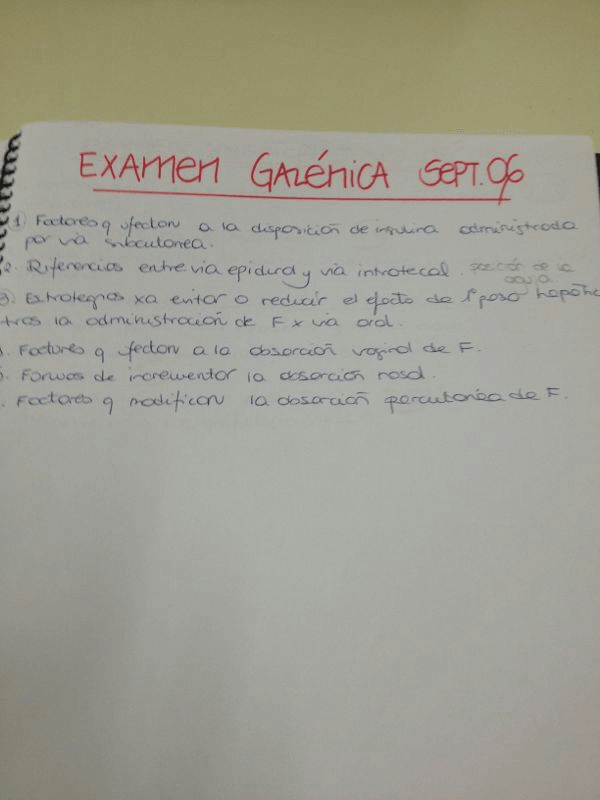 EXAMEN GALÉNICA SEPT.06
1) Factores q afectan a la disposición de insulina administrada
por vía subcutanea.
2. Diferencias entre via epidural y via intratecal. posición de la
aguja
3) Estrategias xa evitar o reducir el efecto de 1er paso hepático
tras la administración de F x via oral.
. Factores q afectan a la absorción vaginal de F.
. Formas de incrementar la absorción nasal.
. Factores q modifican la absorción percutanéa de F.